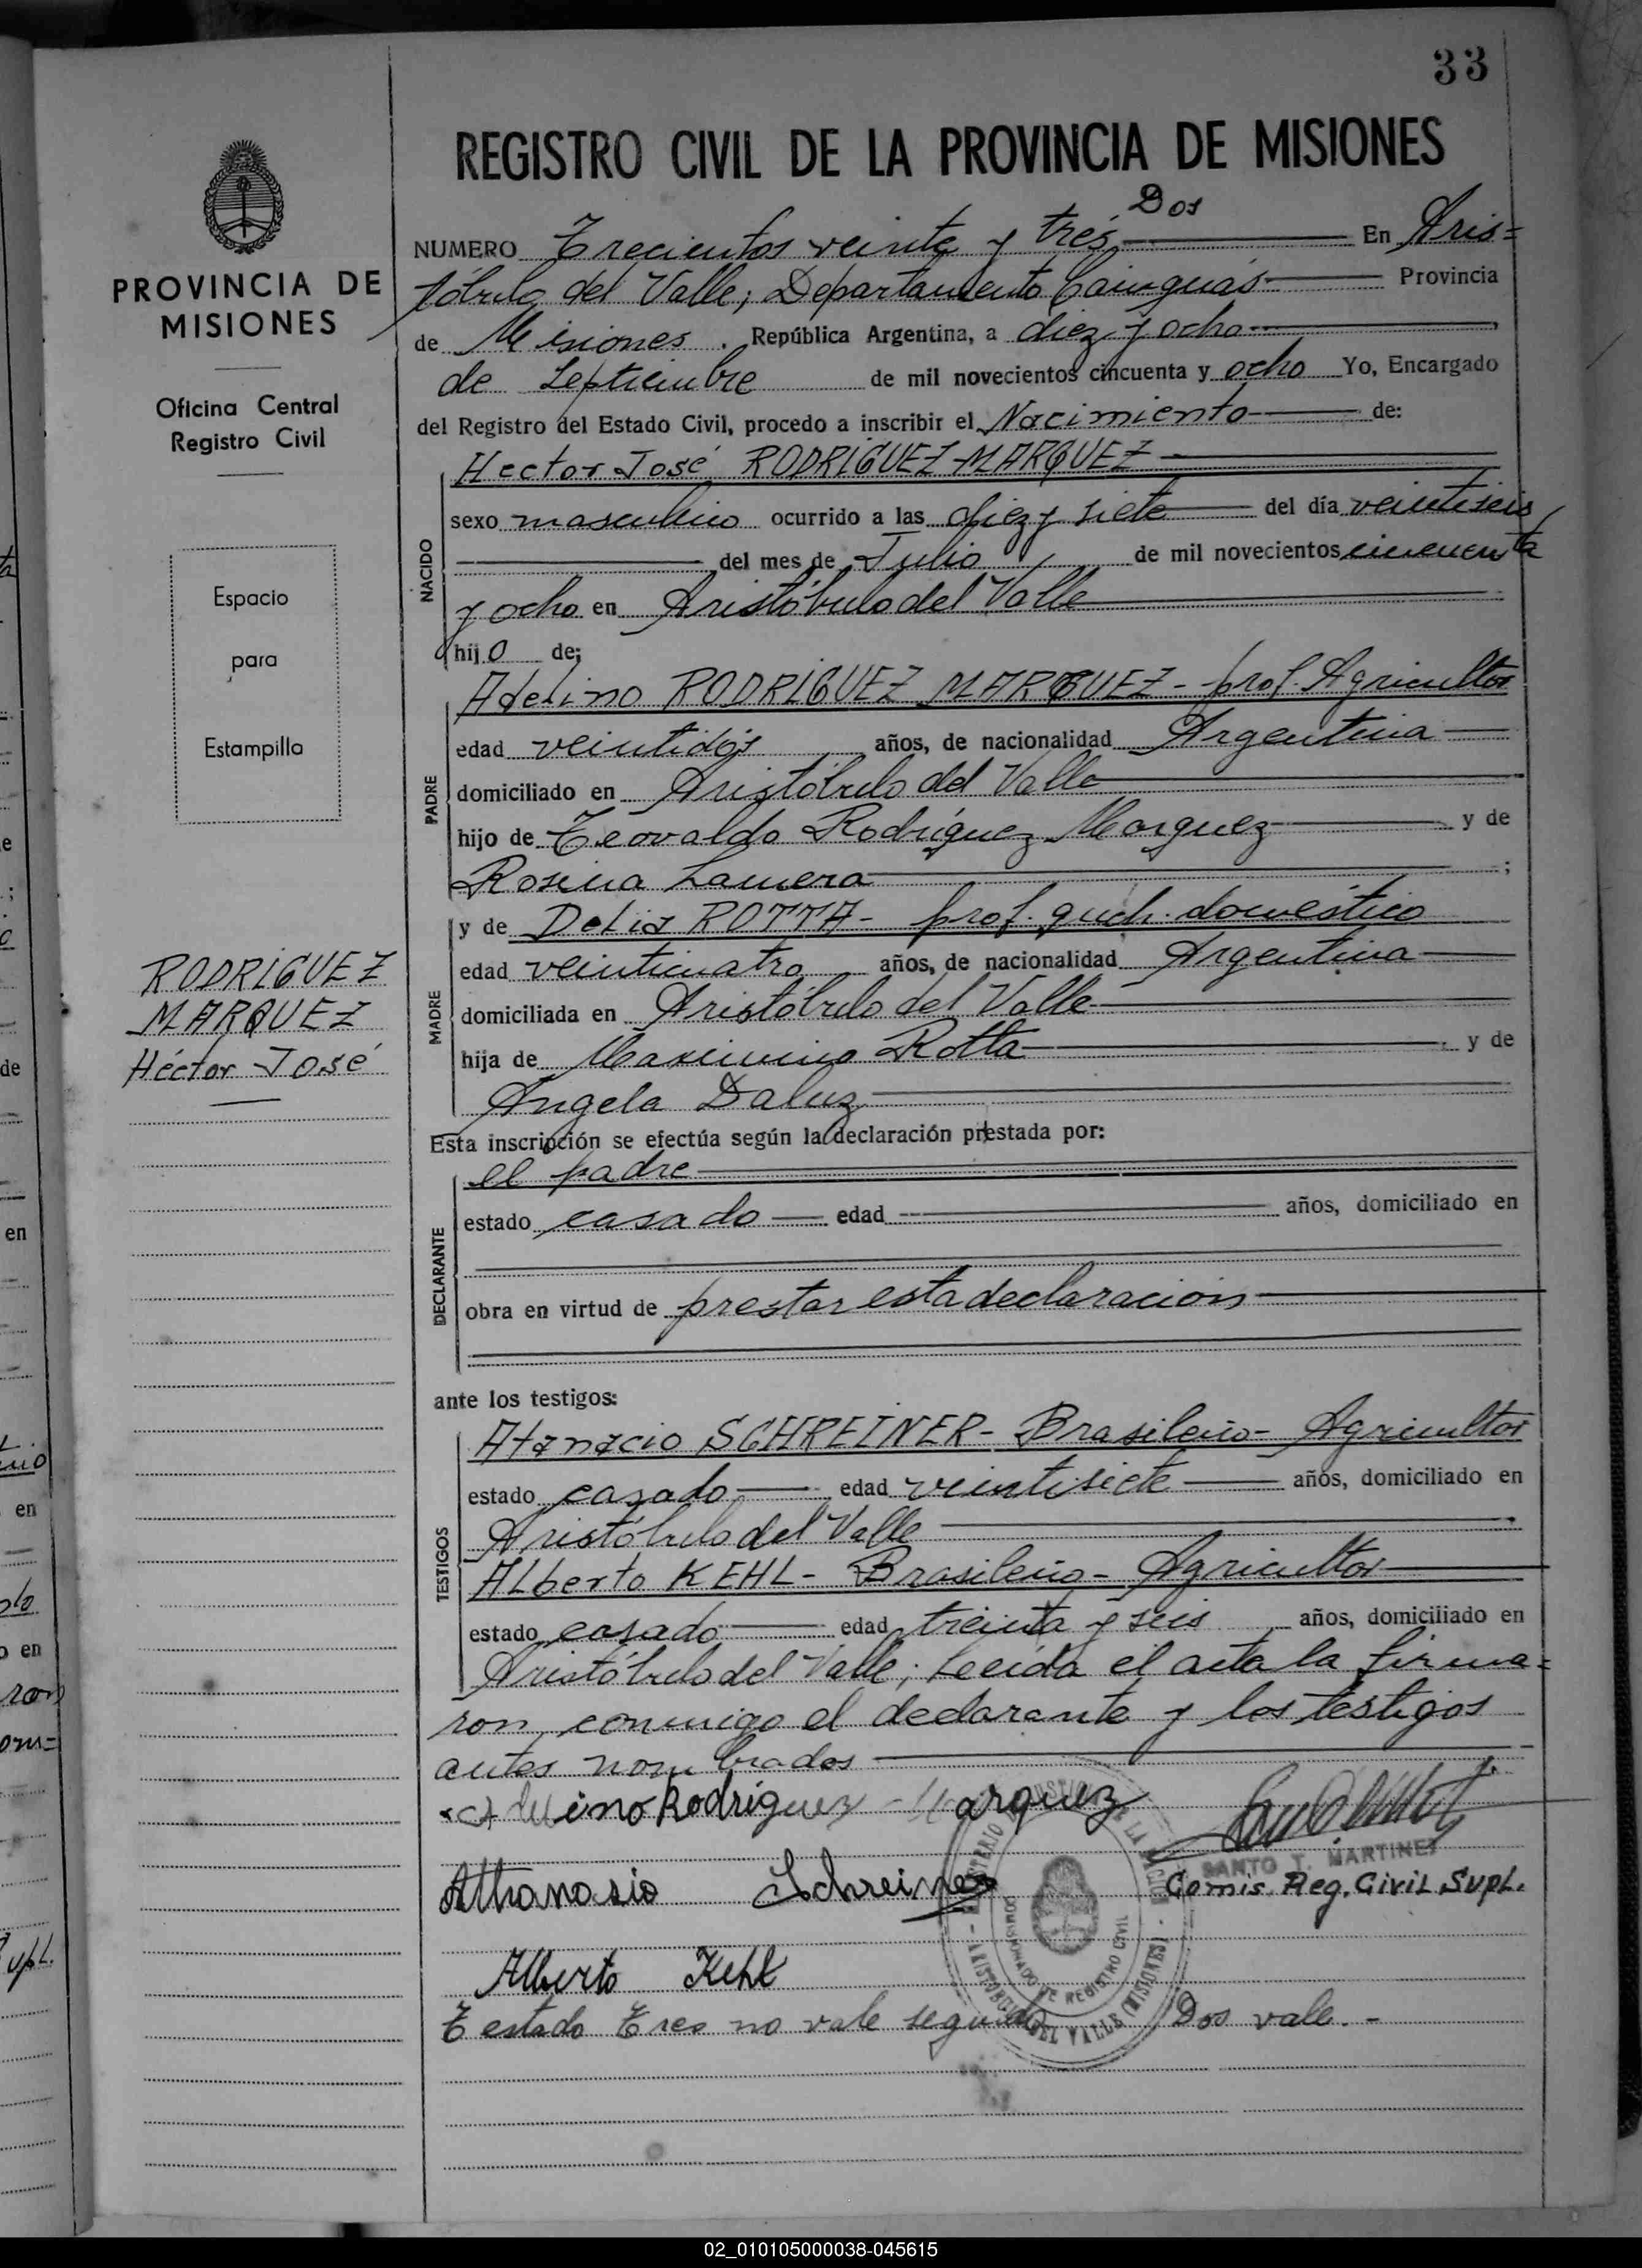 33
REGISTRO CIVIL DE LA PROVINCIA DE MISIONES
PROVINCIA DE
MISIONES
Oficina Central
Registro Civil
Espacio
para
Estampilla
RODRIGUEZ
MARQUEZ
Héctor José
Dos
NUMERO Trecientos veinte y tres En Aris=
tóbulo del Valle; Departamento Cainguás Provincia
de Misiones. República Argentina, a diez y ocho
de Septiembre de mil novecientos cincuenta y ocho Yo, Encargado
del Registro del Estado Civil, procedo a inscribir el Nacimiento de:
NACIDO
Hector José RODRIGUEZ MARQUEZ
sexo masculino ocurrido a las diez y siete del día veintiseis
del mes de Julio de mil novecientos cincuenta
y ocho en Aristóbulo del Valle
hijo de;
PADRE
Adelino RODRIGUEZ MARQUEZ - prof. Agricultor
edad veintidós años, de nacionalidad Argentina
domiciliado en Aristóbulo del Valle
hijo de Teovaldo Rodríguez Marquez y de
Rosina Lamera;
MADRE
y de Delia ROTTA - prof. queh. doméstico
edad veinticuatro años, de nacionalidad Argentina
domiciliada en Aristóbulo del Valle
hija de Maximino Rotta y de
Angela Daluz
Esta inscripción se efectúa según la declaración prestada por:
DECLARANTE
el padre
estado casado edad años, domiciliado en
obra en virtud de prestar esta declaración
ante los testigos:
TESTIGOS
Atanacio SCHREINER - Brasileño - Agricultor
estado casado edad veintisiete años, domiciliado en
Aristóbulo del Valle
Alberto KEHL - Brasileño - Agricultor
estado casado edad treinta y seis años, domiciliado en
Aristóbulo del Valle; Leída el acta la firma=
ron conmigo el declarante y los testigos
antes nombrados
Adelino Rodriguez Marquez
SANTO T. MARTINEZ
Athanasio Schreiner
Comis. Reg. Civil Supl.
Alberto Kehl
Testado Tres no vale segundo Dos vale. -
02_010105000038-045615